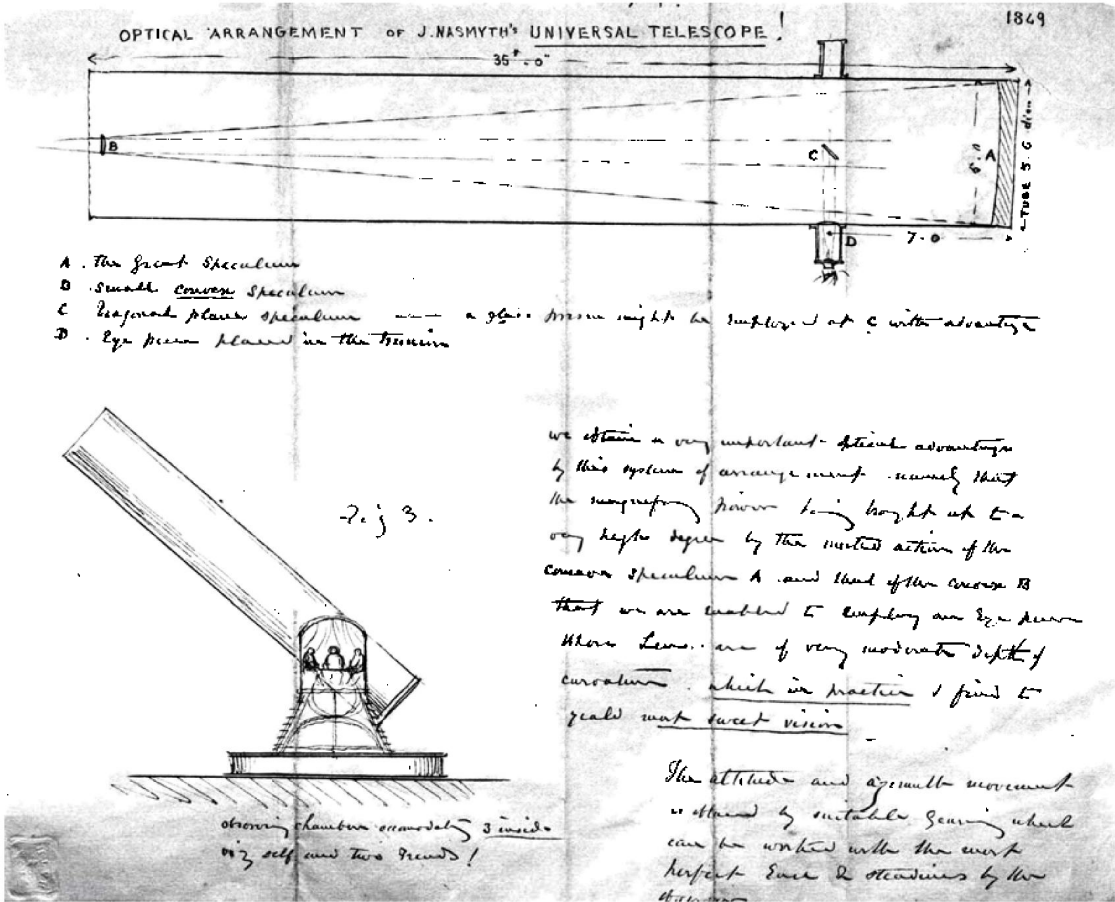 1849
OPTICAL ARRANGEMENT OF J. NASMYTH'S UNIVERSAL TELESCOPE!
35'.0"
B
C
A
6.0
TUBE 5.6 diam
D
7.0
A. the Great Speculum
B small convex Speculum
C Diagonal plane speculum --- a glass prism might be Employed at C with advantage
D. Eye piece placed in the trunnion
Fig 3.
we obtain a very important optical advantage
by this system of arrangement namely that
the magnifying power being brought up to a
very high degree by the united action of the
concave speculum A and that of the convex B
that we are enabled to Employ an Eye piece
whose Lens.. are of very moderate depth of
curvature which in practice I find to
yeald most sweet vision
The altitude and azimuth movement
is obtained by suitable Gearing which
can be worked with the most
perfect Ease & steadiness by the
observing chamber accomodating 3 inside
viz self and two Friends!